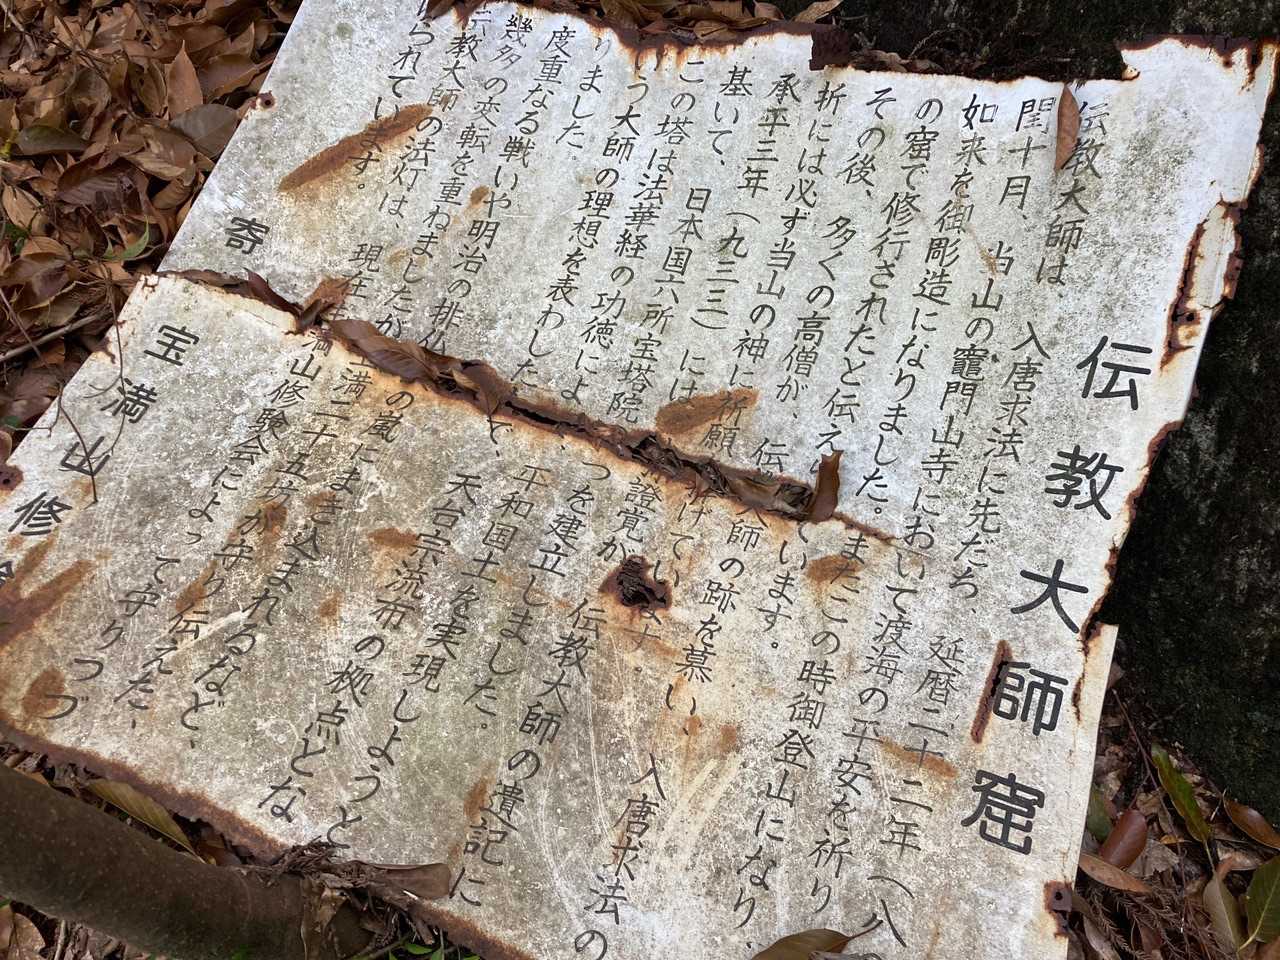 伝教大師窟
伝教大師は、入唐求法に先だち、延暦二十二年（八
閏十月、当山の竈門山寺において渡海の平安を祈り
如来を御彫造になりました。またこの時御登山になり、
の窟で修行されたと伝えています。
その後、多くの高僧が、伝大師の跡を慕い、入唐求法の
祈には必ず当山の神に祈願げています。
承平三年（九三三）には證覚が伝教大師の遺記に
基いて、日本国六所宝塔院つを建立しました。
この塔は法華経の功徳によ、平和国土を実現しようと
いう大師の理想を表わしたで、天台宗流布の拠点とな
りました。
度重なる戦いや明治の排仏の嵐にまき込まれるなど、
幾多の変転を重ねましたが満二十五坊が守り伝えた、
伝教大師の法灯は、現在満山修験会によって守りつづ
られています。
寄 宝満山修